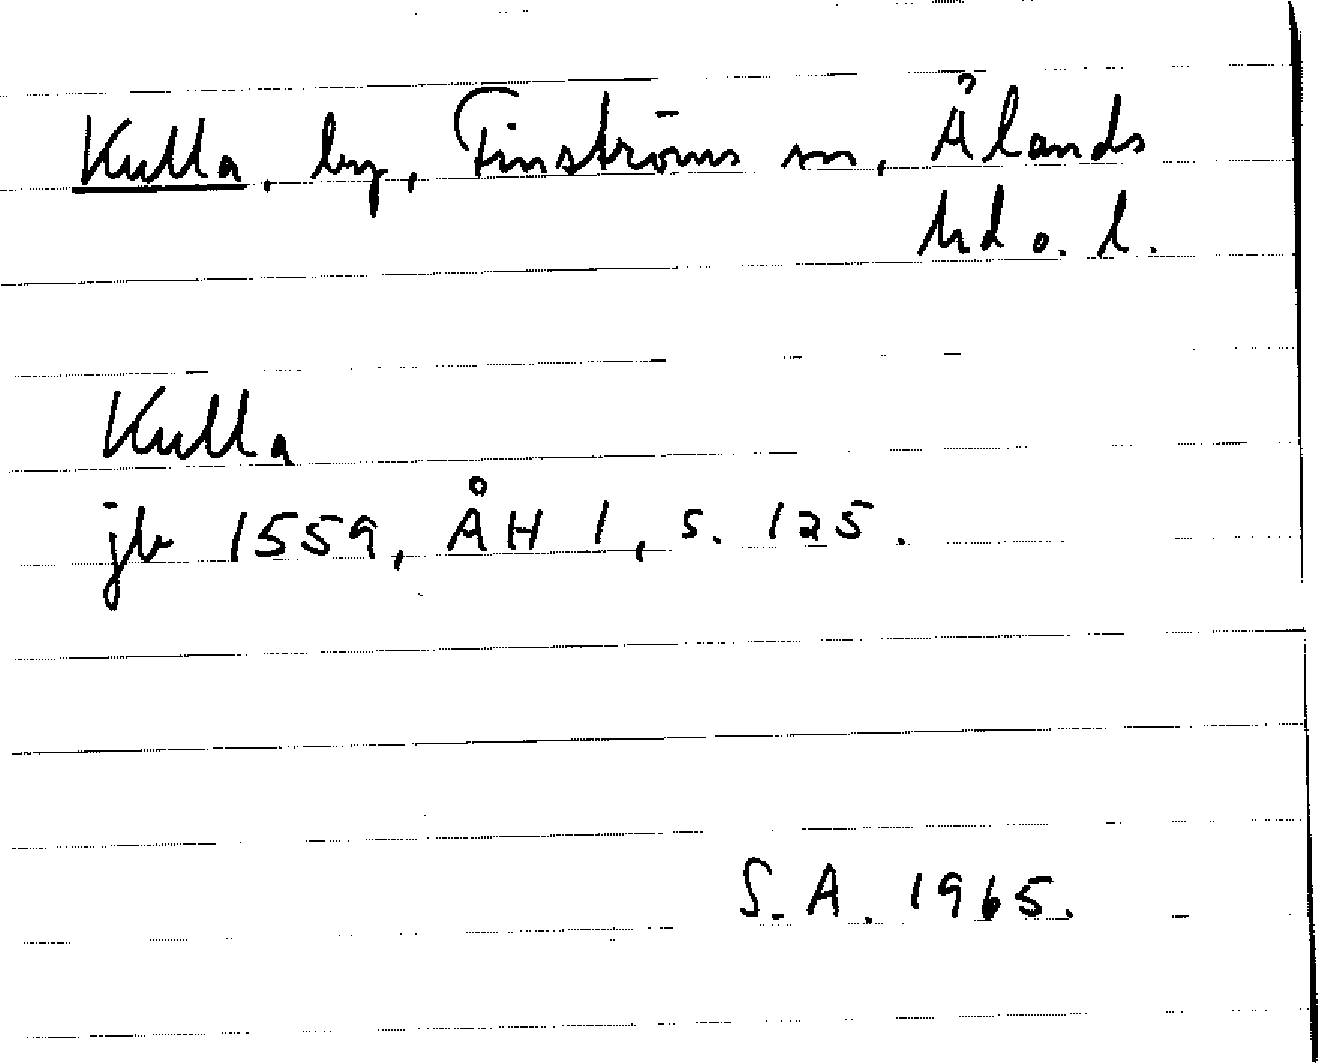 Kulla, by, Finströms sn, Ålands
hd o. l.
Kulla
jb 1559, ÅH 1, s. 125.
S. A. 1965.